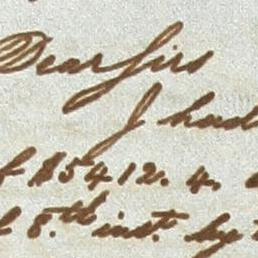 Dear Sirs
I had
of $5412. 4.
8.th inst. by